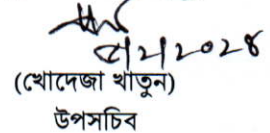 ২০২৪
(খোদেজা খাতুন)
উপসচিব